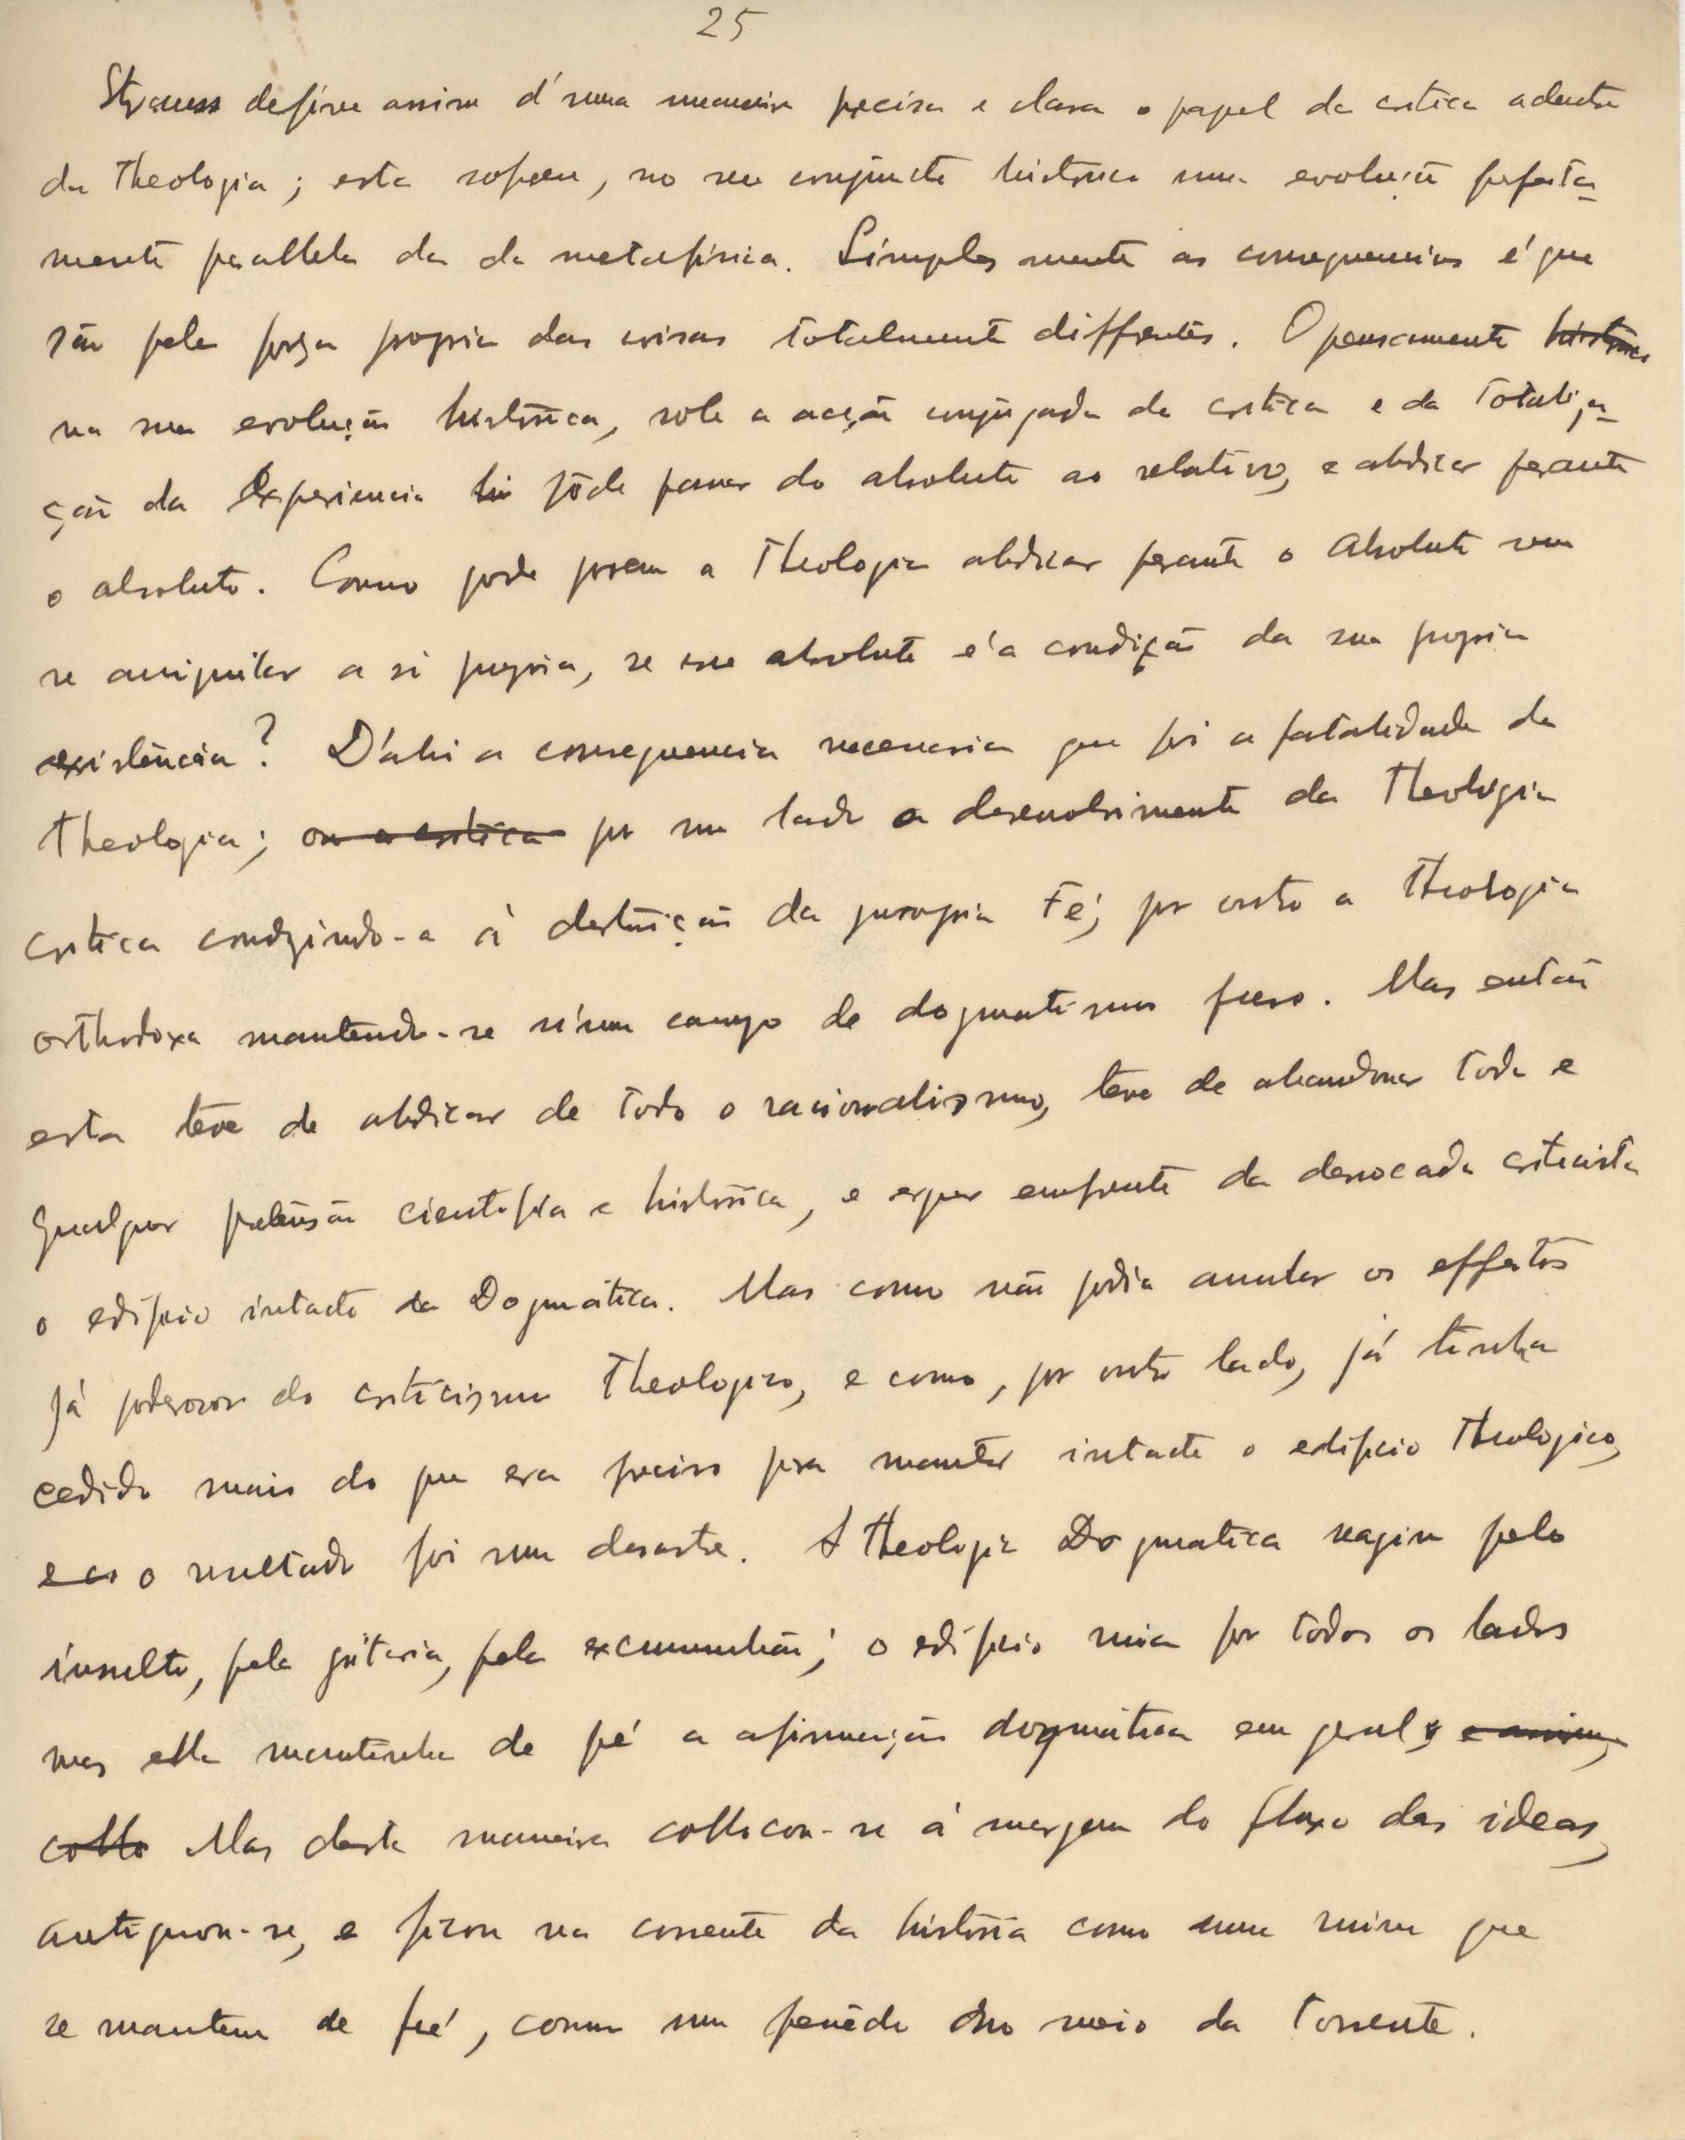 25
Strauss define assim d'uma maneira precisa e clara o papel da critica adentro
da Theologia; esta soffreu, no seu conjuncto historico uma evolução perfeita-
mente parallela da da metafisica. Simplesmente as consequencias é que
são pela força propria das coisas totalmente differentes. O pensamento historico
na sua evolução histórica, sob a acção conjugada da critica e da Totaliza-
ção da Experiencia hi pôde passar do absoluto ao relativo, e abdicar perante
o absoluto. Como pode porem a Theologia abdicar perante o Absoluto sem
se aniquilar a si propria, se esse absoluto é a condição da sua propria
existência? D'ahi a consequencia necessaria que foi a fatalidade da
Theologia; ou a critica por um lado o desenvolvimento da Theologia
critica conduzindo-a á destruição da propria Fé; por outro a Theologia
orthodoxa mantendo-se n'um campo de dogmatismo puro. Mas então
esta teve de abdicar de todo o racionalismo, teve de abandonar toda e
qualquer pretensão cientifica e histórica, e erguer emfrente da derrocada criticista
o edificio intacto da Dogmática. Mas como não podia anular os effeitos
já poderosos do criticismo Theologico, e como, por outro lado, já tinha
cedido mais do que era preciso para manter intacto o edificio Theologico,
e co o resultado foi um desastre. A Theologia Dogmatica reagiu pelo
insulto, pela gritaria, pela excumunhão; o edificio ruia por todos os lados
mas ella mantinha de pé a afirmação dogmática em geral; e assim,
collo Mas desta maneira collocou-se á margem do fluxo das ideas,
antiquou-se, e ficou na corrente da história como uma ruina que
se mantem de pé, como um penêdo no meio da torrente.